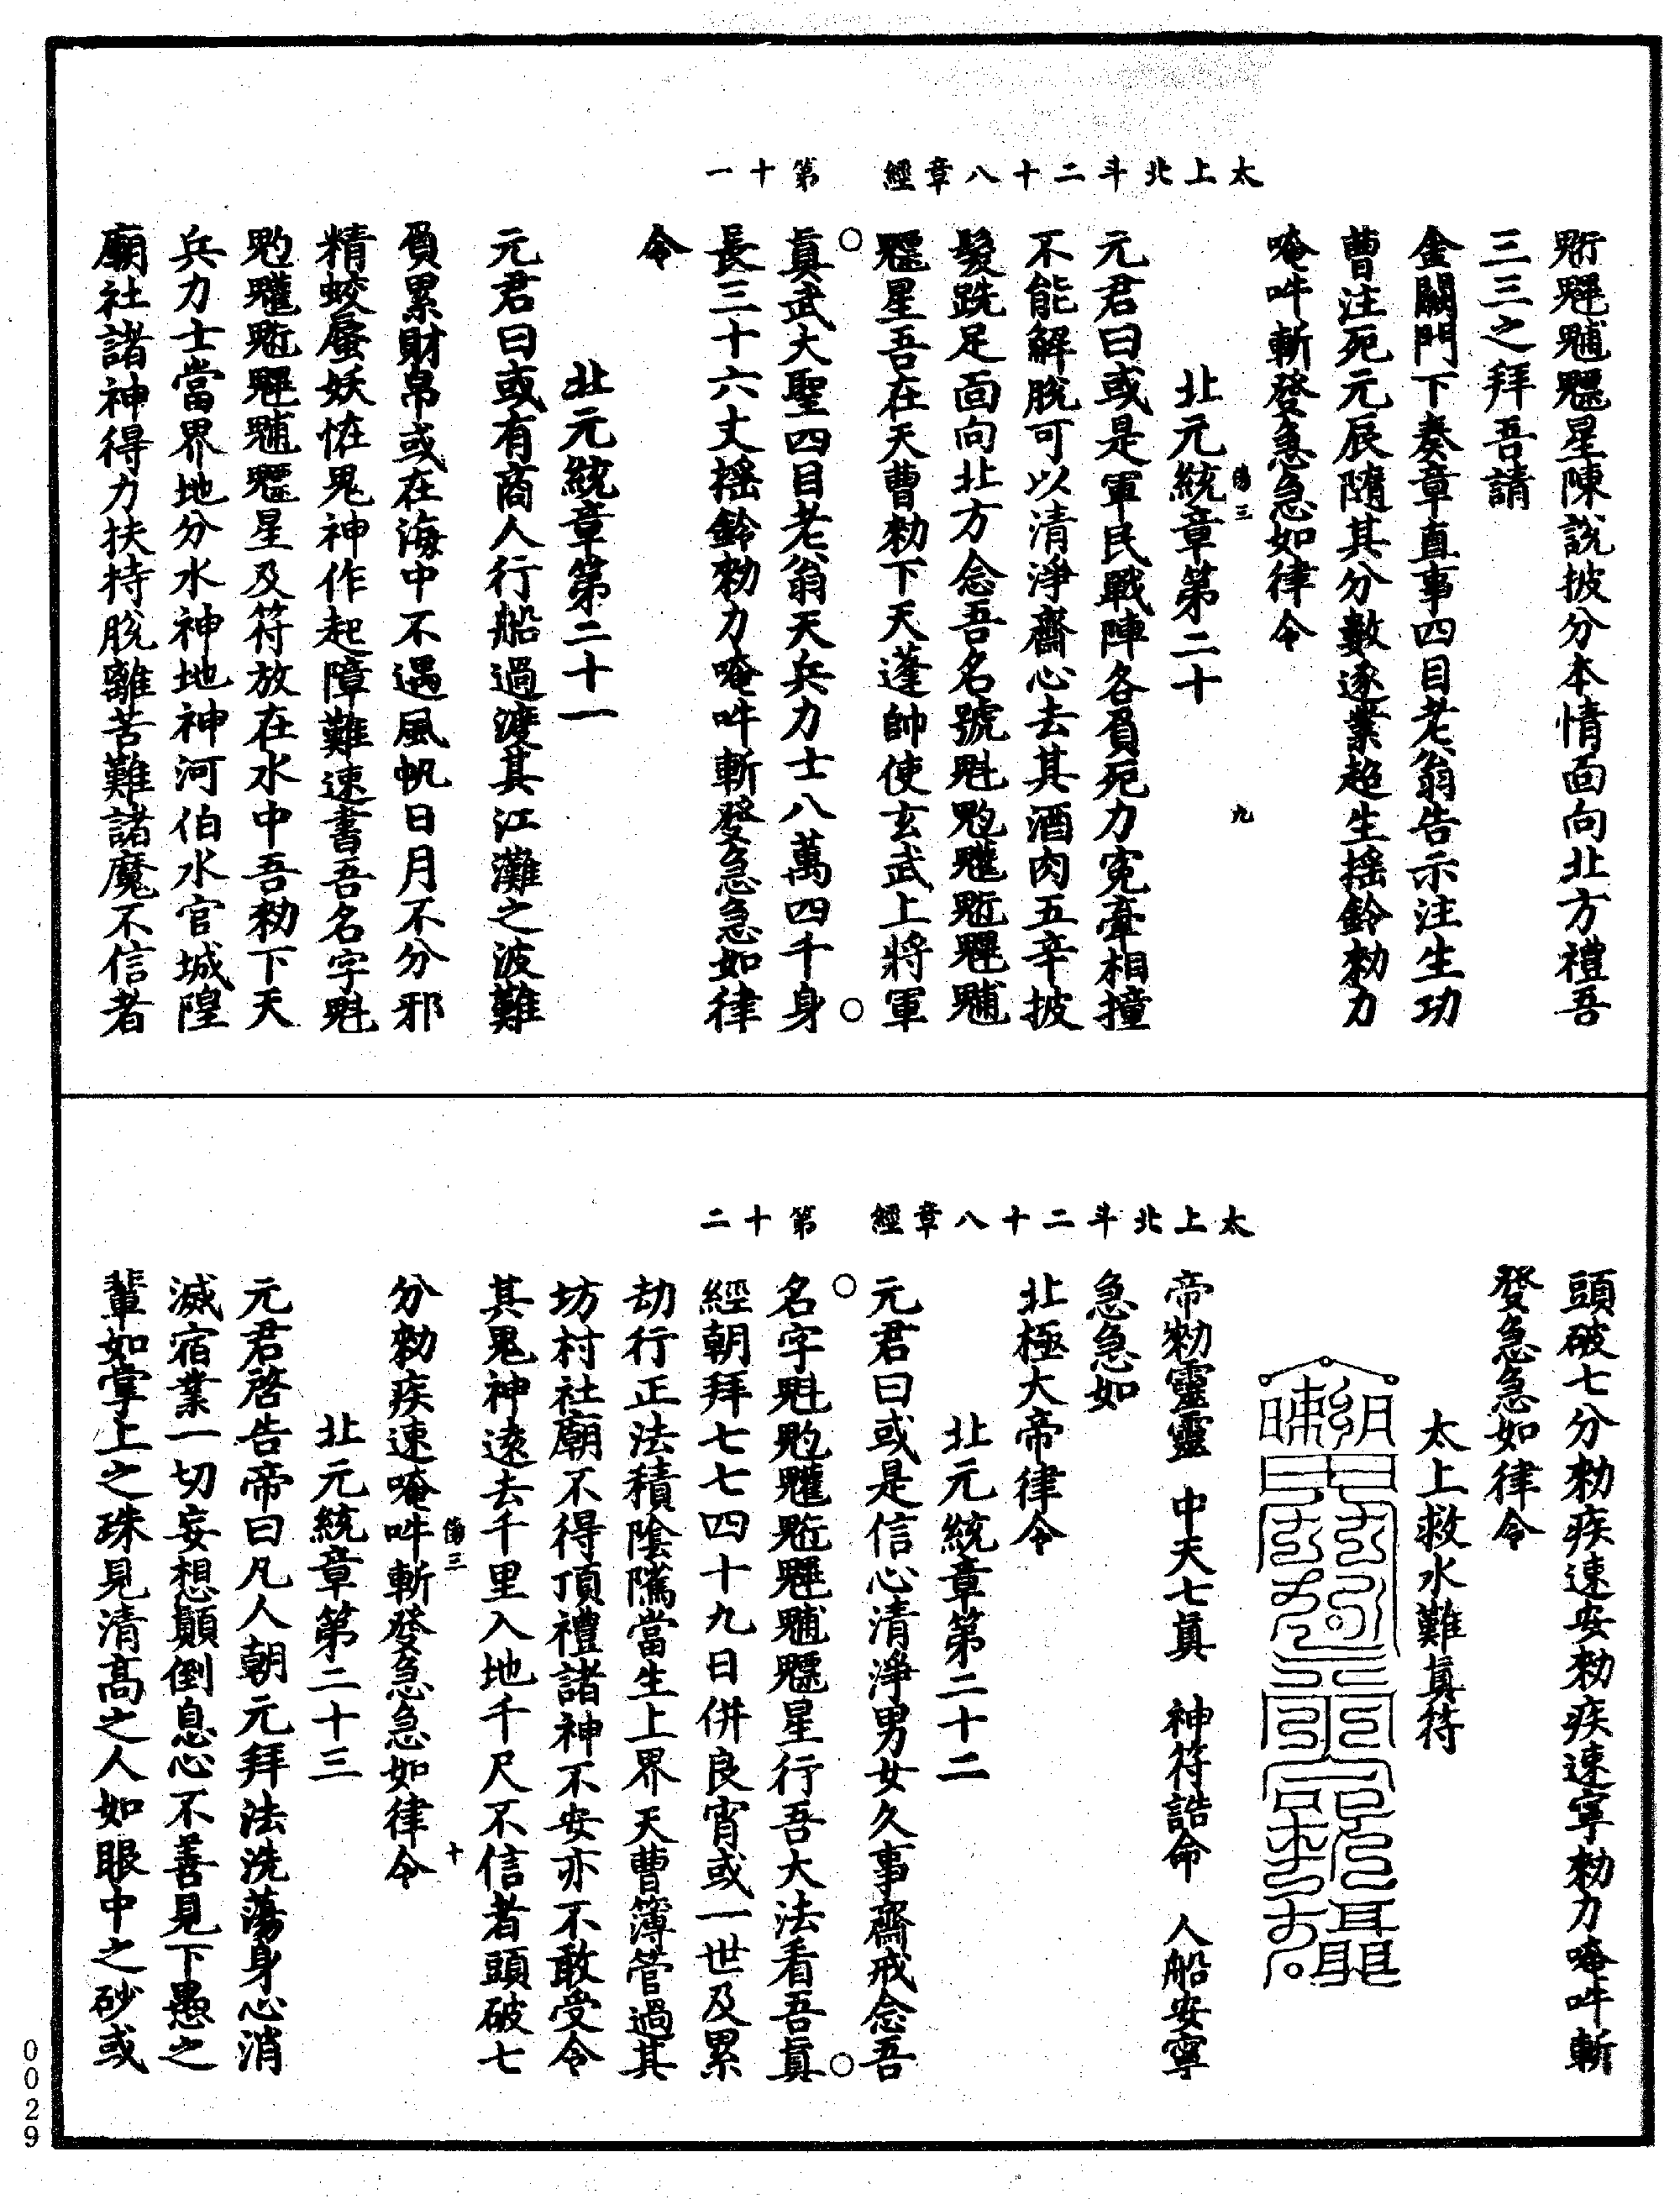 太上北斗二十八章經 第十一
𩲴魓𩳐魒星陳說披分本情面向北方禮吾
三三之拜吾請
金闕門下奏章直事四目老翁告示注生功
曹注死元辰隨其分數逐業超生搖鈴勑力
唵吽斬發急急如律令
傷三
九
北元統章第二十
元君曰或是軍民戰陣各負死力寃牽相撞
不能解脫可以清淨齋心去其酒肉五辛披
髮跣足面向北方念吾名號魁𩲃𩵄𩲴魓𩳐
魒星吾在天曹勑下天蓬帥使玄武上將軍
眞武大聖四目老翁天兵力士八萬四千身
長三十六丈搖鈴勑力唵吽斬發急急如律
令
北元統章第二十一
元君曰或有商人行船過渡其江灘之波難
負累財帛或在海中不遇風帆日月不分邪
精蛟蜃妖恠鬼神作起障難速書吾名字魁
𩲃𩵄𩲴魓𩳐魒星及符放在水中吾勑下天
兵力士當界地分水神地神河伯水官城隍
廟社諸神得力扶持脫離苦難諸魔不信者
太上北斗二十八章經 第十二
頭破七分勑疾速安勑疾速寧勑力唵吽斬
發急急如律令
太上救水難眞符
帝勑靈靈 中天七眞 神符誥命 人船安寧
急急如
北極大帝律令
北元統章第二十二
元君曰或是信心清淨男女久事齋戒念吾
名字魁𩲃𩵄𩲴魓𩳐魒星行吾大法看吾眞
經朝拜七七四十九日併良宵或一世及累
劫行正法積陰隲當生上界天曹簿管過其
坊村社廟不得頂禮諸神不安亦不敢受令
其鬼神遠去千里入地千尺不信者頭破七
分勑疾速唵吽斬發急急如律令
傷三
十
北元統章第二十三
元君啓告帝曰凡人朝元拜法洗蕩身心消
滅宿業一切妄想顚倒息心不善見下愚之
輩如掌上之珠見清高之人如眼中之砂或
0029